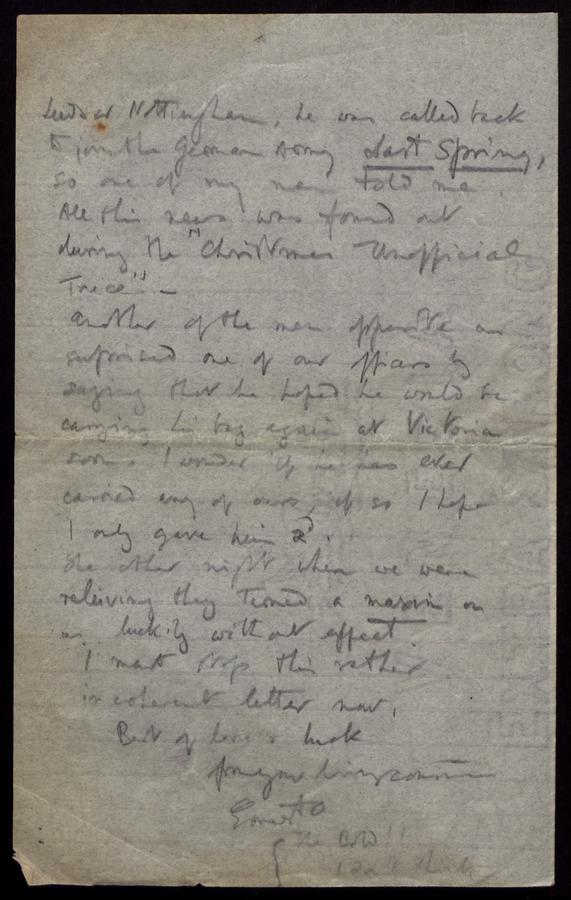 Leeds or Nottingham, he was called back
to join the German Army last Spring,
so one of my men told me.
All this news was found out
during the "Christmas Unofficial
Truce" –
Another of the men opposite us
surprised one of our officers by
saying that he hoped he would be
carrying his bag again at Victoria
soon. I wonder if he has ever
carried any of ours, if so I hope
I only gave him 2d.
The other night when we were
releiving they turned a maxim on
us, luckily without effect
I must stop this rather
incoherent letter now.
Best of love & luck
from your loving cousin
Ernest
The Cold!!
I don't think